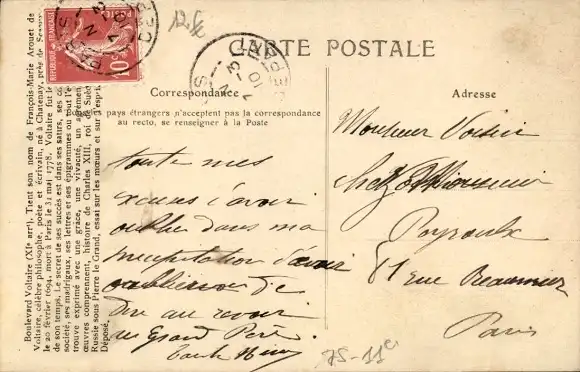 12 f
CARTE POSTALE
Correspondance
Les pays étrangers n'acceptent pas la correspondance
au recto, se renseigner à la Poste
Adresse
Boulevard Voltaire (XIe arrt). Tient son nom de François-Marie Arouet de
Voltaire, célèbre philosophe, poète et écrivain, né à Chatenay, près de Sceaux
le 20 février 1694, mort à Paris le 31 mai 1778. Voltaire fut le
de son temps. Le secret de ses succès est dans ses satires, ses
société, ses madrigaux, ses lettres et ses épigrammes ou tout l'e
trouve exprimé avec une grâce, une vivacité, un agrément
œuvres comprennent, histoire de Charles XIII, roi de Suède
Russie sous Pierre le Grand, essai sur les mœurs et sur l'espri
Déposé.
toute mes
excuses d'avoir
oublié dans ma
d'avoir
de
dire au revoir
au Grand Père.
Monsieur Voisin
chez Monsieur
Peyroulx
81 rue Reaumur
Paris
75-11e
POSTES
RÉPUBLIQUE FRANÇAISE
10
PARIS